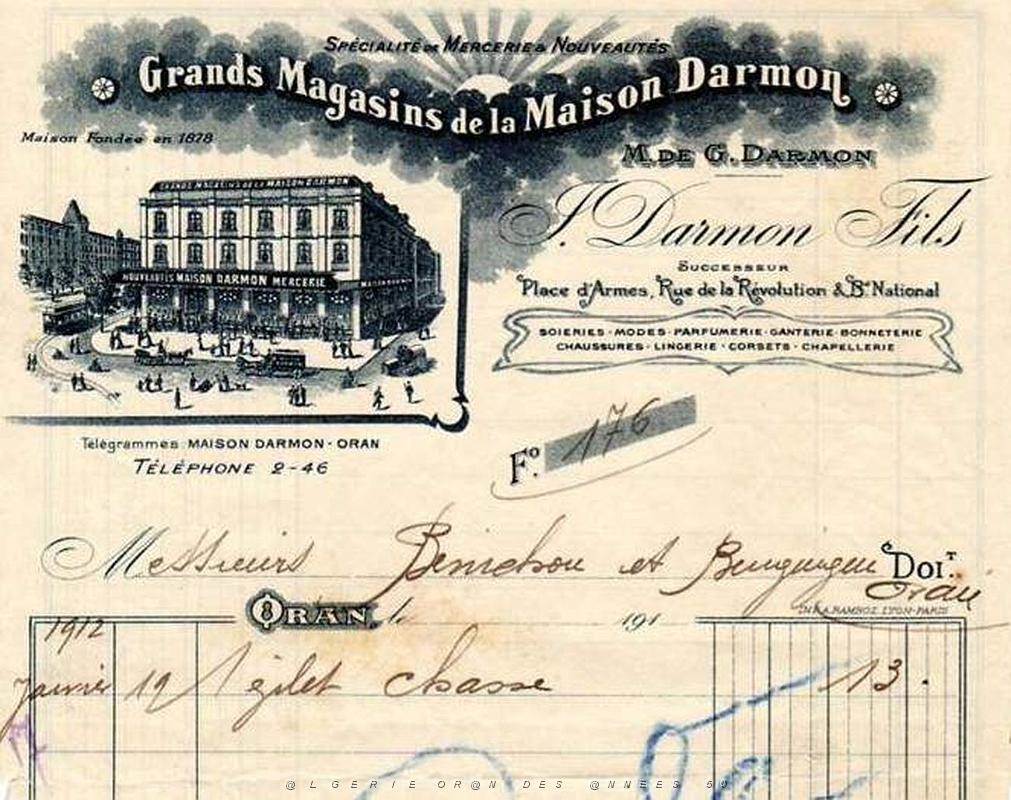 SPÉCIALITÉ DE MERCERIE & NOUVEAUTÉS
Grands Magasins de la Maison Darmon
Maison Fondée en 1878
M. DE G. DARMON
J. Darmon Fils
SUCCESSEUR
Place d'Armes, Rue de la Révolution & Bd National
SOIERIES · MODES · PARFUMERIE · GANTERIE · BONNETERIE
CHAUSSURES · LINGERIE · CORSETS · CHAPELLERIE
GRANDS MAGASINS DE LA MAISON DARMON
NOUVEAUTÉS MAISON DARMON MERCERIE
Télégrammes: MAISON DARMON - ORAN
TÉLÉPHONE 2-46
Fo. 176
Messieurs Benichou et Doit.
Oran
IMP. A. RAMBOZ. LYON-PARIS
ORAN, le 191
1912
Janvier 12 1 gilet chasse 13.
@LGERIE OR@N DES @NNEES 50